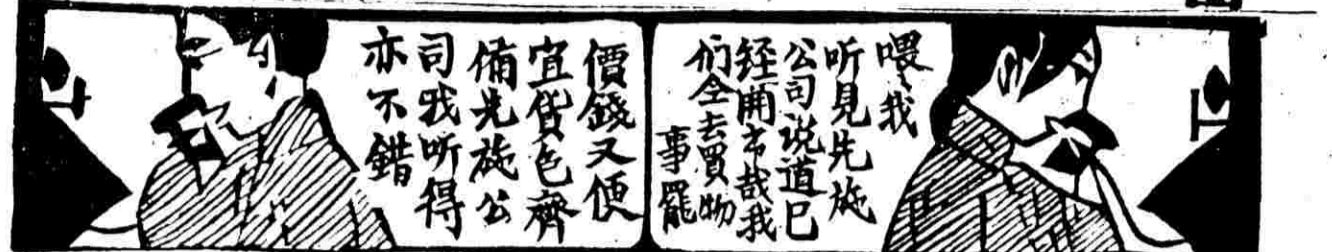 喂、我
听見先施
公司说道已
经開市哉我
们全去買物
事罷
價錢又便
宜貨色齊
備先施公
司我听得
亦不錯